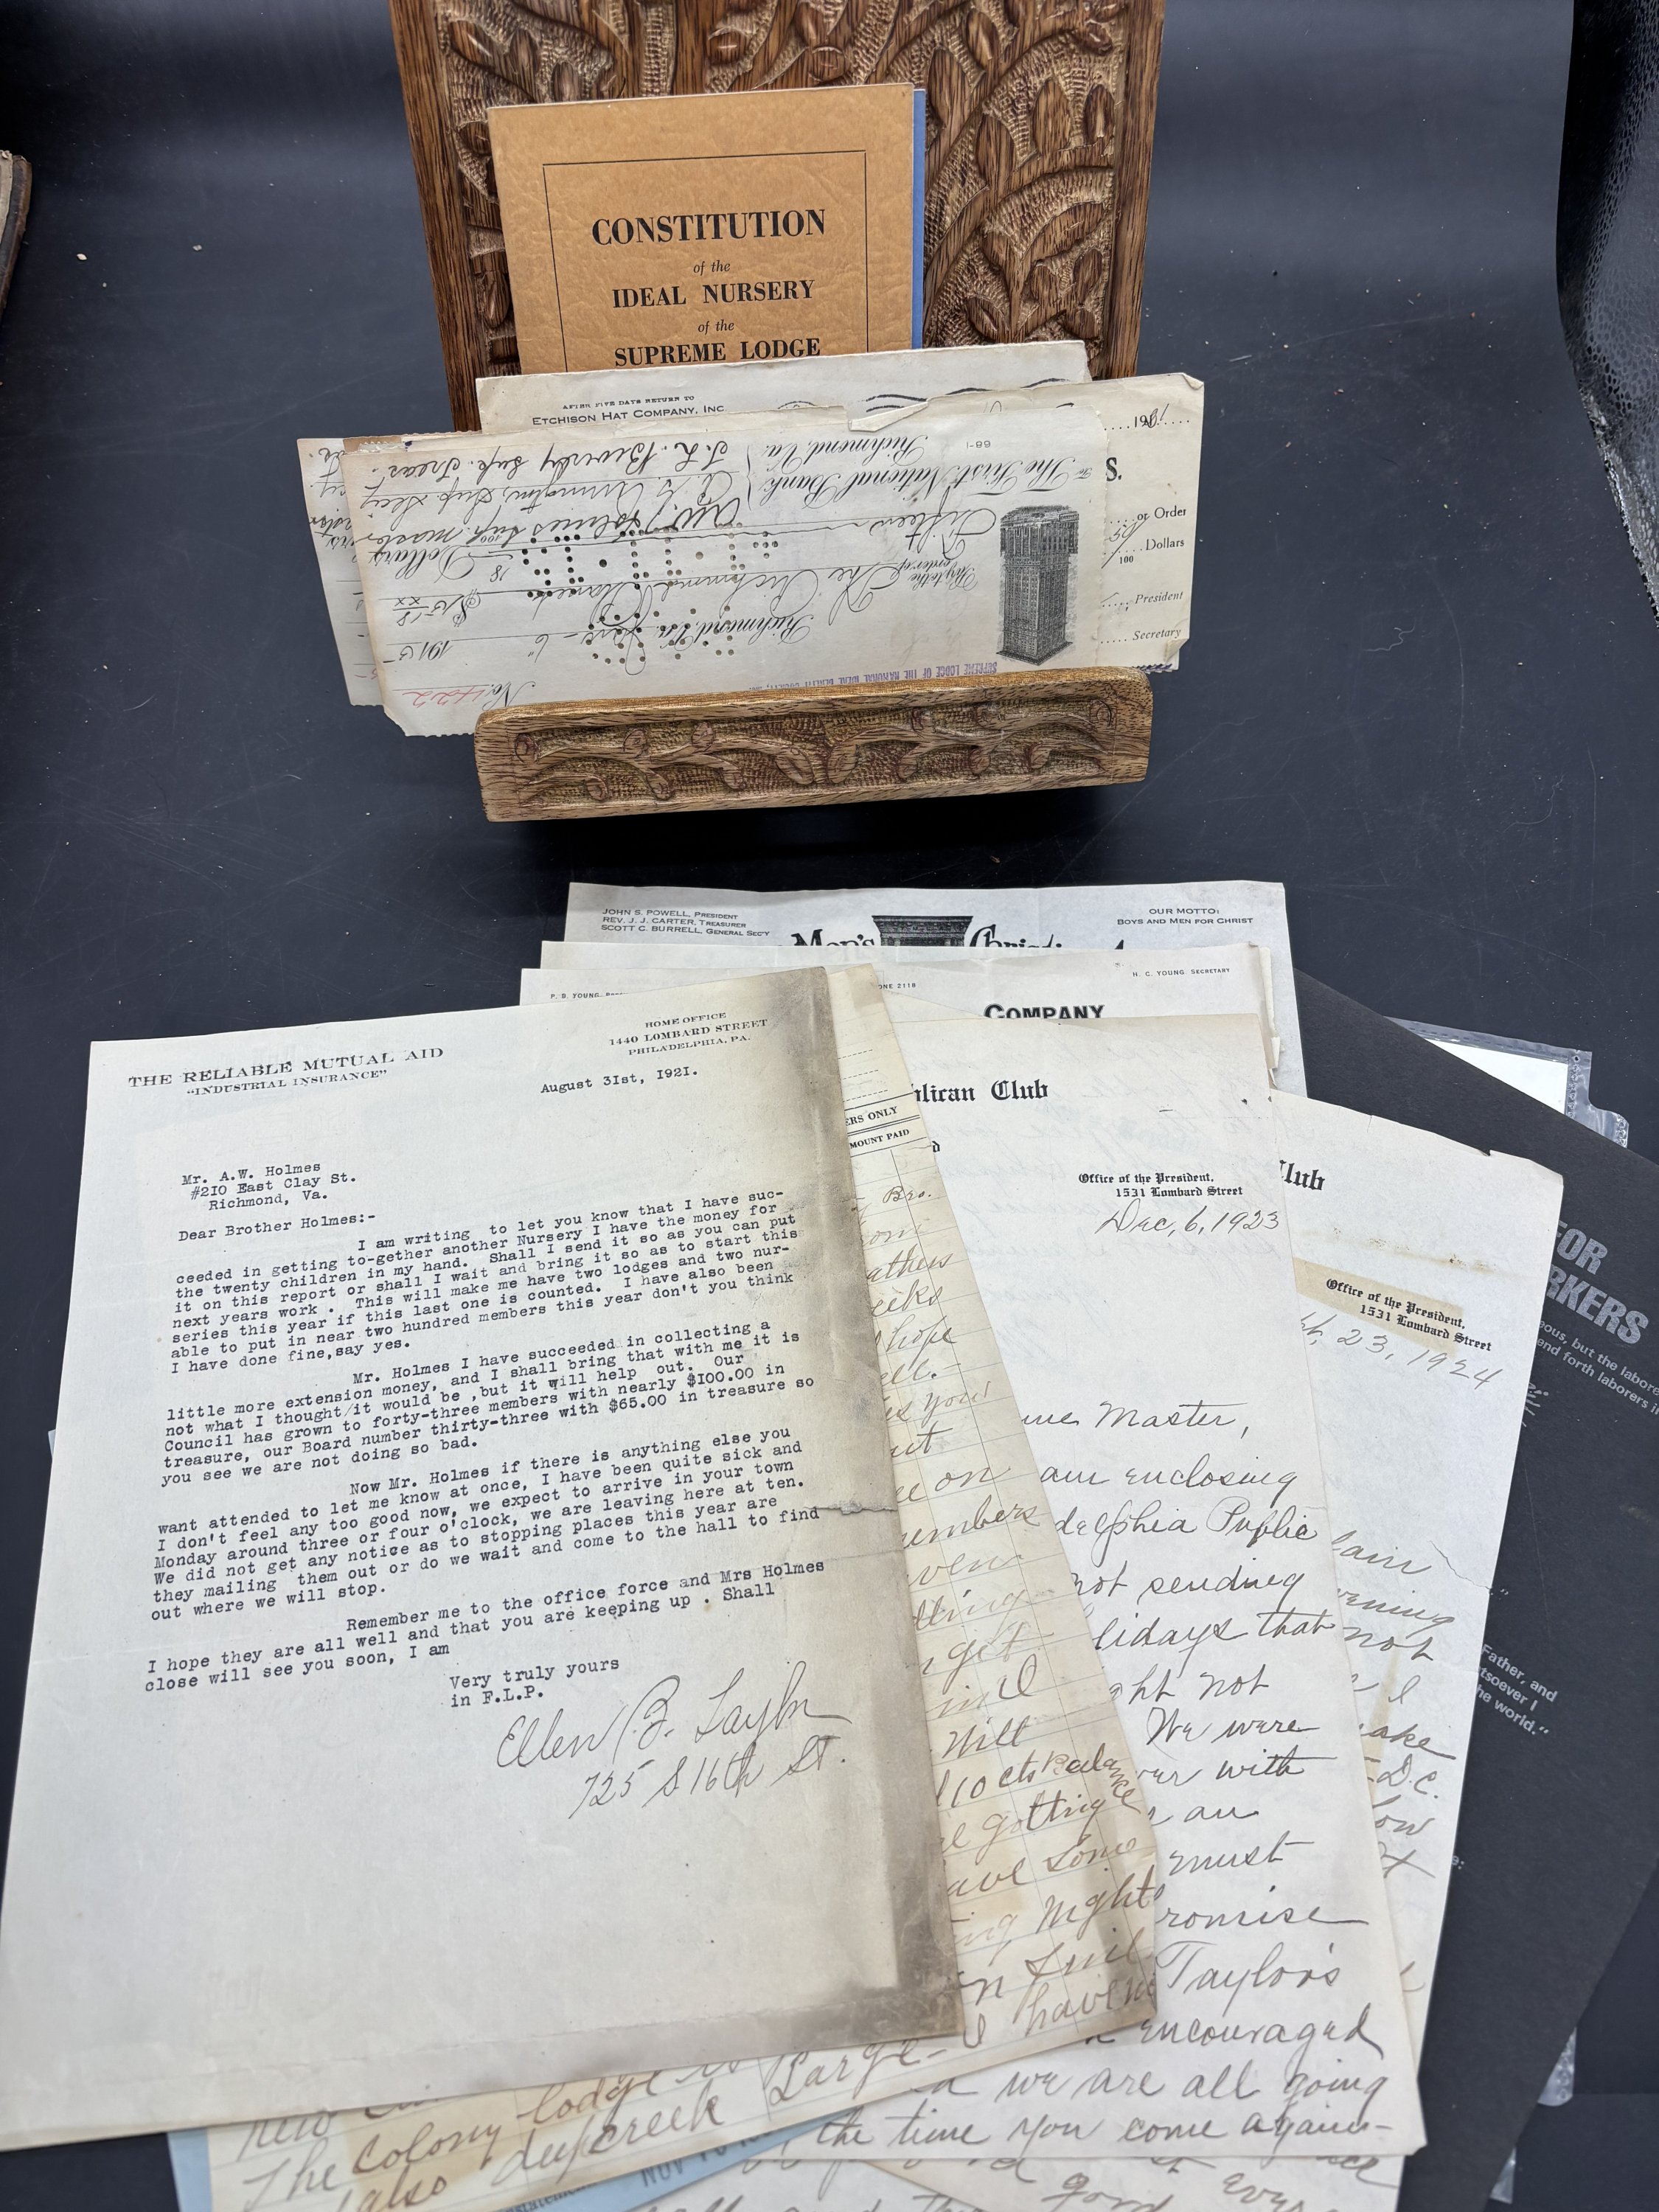 CONSTITUTION
of the
IDEAL NURSERY
of the
SUPREME LODGE
AFTER FIVE DAYS RETURN TO
ETCHISON HAT COMPANY, INC.
No. 1422
SUPREME LODGE OF THE NATIONAL IDEAL BENEFIT SOCIETY,
Richmond, Va. 6" 1915
Pay to the order of The Richmond Planet $15 18/xx
Fifteen 18/100 Dollars
A.W. Holmes Sup. Master
The First National Bank
Richmond, Va.
68-1
J. R. Beverly Sup. Treas.
191
S.
or Order
100 Dollars
President
Secretary
JOHN S. POWELL, PRESIDENT
REV. J. J. CARTER, TREASURER
SCOTT C. BURRELL, GENERAL SEC'Y
OUR MOTTO:
BOYS AND MEN FOR CHRIST
Men's Christi
P. B. YOUNG,
ONE 2118
H. C. YOUNG, SECRETARY
COMPANY
THE RELIABLE MUTUAL AID
"INDUSTRIAL INSURANCE"
HOME OFFICE
1440 LOMBARD STREET
PHILADELPHIA, PA.
August 31st, 1921.
Mr. A.W. Holmes
#210 East Clay St.
Richmond, Va.
Dear Brother Holmes:-
I am writing to let you know that I have suc-
ceeded in getting to-gether another Nursery I have the money for
the twenty children in my hand. Shall I send it so as you can put
it on this report or shall I wait and bring it so as to start this
next years work . This will make me have two lodges and two nur-
series this year if this last one is counted. I have also been
able to put in near two hundred members this year don't you think
I have done fine,say yes.
Mr. Holmes I have succeeded in collecting a
little more extension money, and I shall bring that with me it is
not what I thought/it would be ,but it will help out. Our
Council has grown to forty-three members with nearly $100.00 in
treasure, our Board number thirty-three with $65.00 in treasure so
you see we are not doing so bad.
Now Mr. Holmes if there is anything else you
want attended to let me know at once, I have been quite sick and
I don't feel any too good now, we expect to arrive in your town
Monday around three or four o'clock, we are leaving here at ten.
We did not get any notice as to stopping places this year are
they mailing them out or do we wait and come to the hall to find
out where we will stop.
Remember me to the office force and Mrs Holmes
I hope they are all well and that you are keeping up . Shall
close will see you soon, I am
Very truly yours
in F.L.P.
Ellen B. Taylor
725 S 16th St.
ERS ONLY
MOUNT PAID
Bro.
athers
eeks
hope
ell.-
your
on
embers
ven
get
Will
10 cts Balance
gotting
ave Some
ng Night
in
I haven
new
The Colony lodge is
also deepcreek Large-
NOV
blican Club
Office of the President,
1531 Lombard Street
Dec, 6, 1923
me Master,
am enclosing
delphia Public
not sending
lidays that
ght not
We were
ver with
an
must
romise
Taylor's
encouraged
we are all going
the time you come again-
lub
Office of the President,
1531 Lombard Street
23, 1924
ening
not
I
ake
D.C.
ow
FOR
RKERS
eous, but the labore
end forth laborers i
Father, and
tsoever I
he world."
good ever